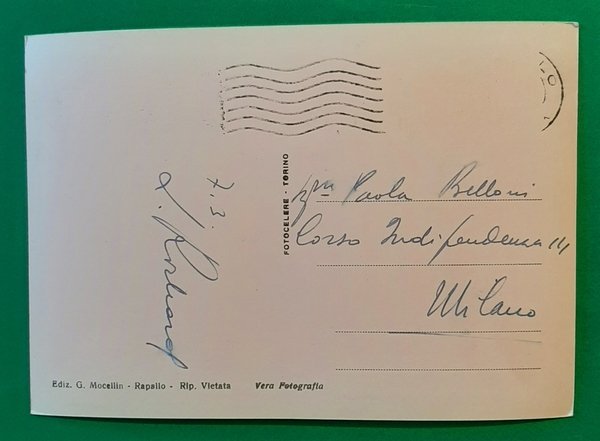 7. 3.
FOTOCELERE - TORINO
Paola Belloni
Corso Indipendenza 14
Milano
Ediz. G. Mocellin - Rapallo - Rip. Vietata Vera Fotografia